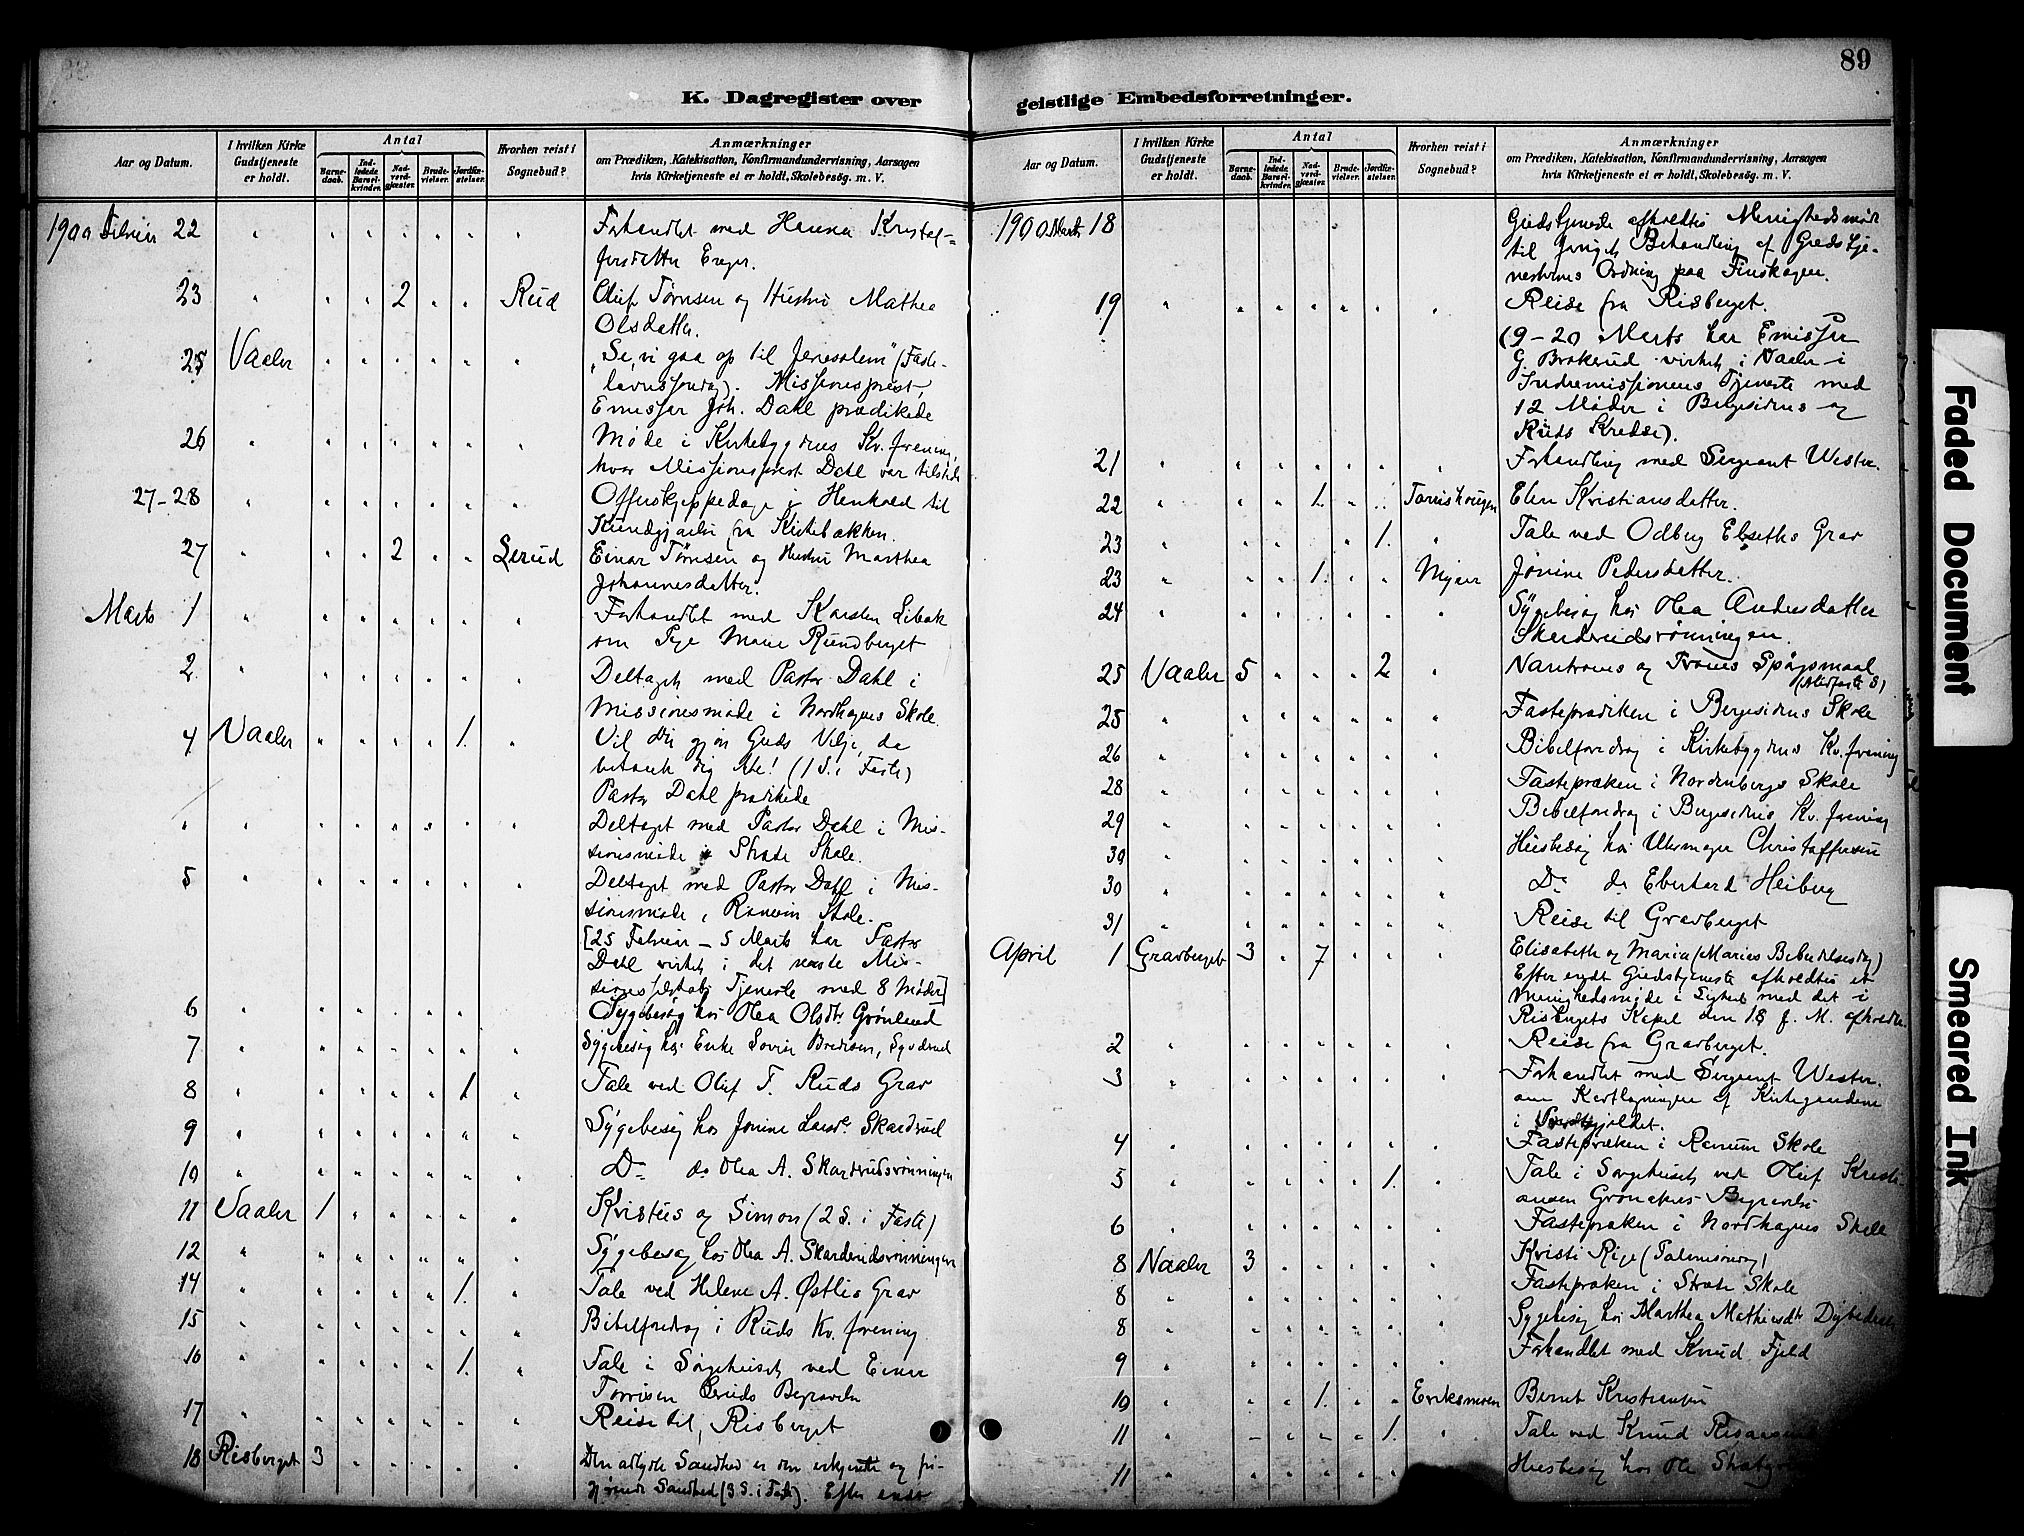 89
K. Dagregister over geistlige Embedsforretninger.
Aar og Datum.
I hvilken Kirke Gudstjeneste er holdt.
Antal
Barnedaab.
Indledede Barselkvinder.
Nadverdgjæster.
Brudevielser.
Jordfæstelser.
Hvorhen reist i Sognebud?
Anmærkninger
om Prædiken, Katekisation, Konfirmandundervisning, Aarsagen
hvis Kirketjeneste ei er holdt, Skolebesög. m. V.
1900 Februar 22 " " " " " " " Forhandlet med Hanna Kristof-
fersdatter Enger.
23 " " " 2 " " Rud Oluf Tørrisen og Hustru Mathea
Olsdatter.
25 Vaaler " " " " " " "Se, vi gaa op til Jerusalem" (Faste-
lavnssøndag). Missionsprest,
Emissær Joh. Dahl prædikede
26 " " " " " " " Møde i Kirkebygdens Kv. forening,
hvor Missionsprest Dahl var tilstede
27-28 " " " " " " " Offerskjeppedage i Henhold til
Kundgjørelse fra Kirkebakken.
27 " " " 2 " " Lerud Einar Tørrisen og Hustru Marthea
Johannesdatter.
Marts 1 " " " " " " " Forhandlet med Karsten Libak
om Pige Marie Rundberget
2 " " " " " " " Deltaget med Pastor Dahl i
Missionsmøde i Nordhagens Skole
4 Vaaler " " " " 1. " Vil du gjøre Guds Vilje, da
betænk dig ikke! (1 S. i Faste)
Pastor Dahl prædikede
" " " " " " " " Deltaget med Pastor Dahl i Mis-
sionsmøde i Stræte Skole.
5 " " " " " " " Deltaget med Pastor Dahl i Mis-
sionsmøde i Renum Skole.
[25 Februar – 5 Marts har Pastor
Dahl virket i det norske Mis-
sionsselskabs Tjeneste med 8 Møder]
6 " " " " " " Sygebesøg hos Olea Olsdtr Grønlund
7 " " " " " " " Sygebesøg hos Enke Lovise Bredesen,
8 " " " " " 1 " Tale ved Oluf T. Ruds Grav
9 " " " " " " " Sygebesøg hos Jonine Larsdr. Skardrud
10 " " " " " " Do do Olea A. Skardrudsrønningen
11 Vaaler 1 " " " " " Kristus og Simon (2 S. i Faste)
12 " " " " " " " Sygebesøg hos Olea A. Skarderudsrønningen
14 " " " " " 1. " Tale ved Helene A. Østlis Grav
15 " " " " " " " Bibelforedrag i Ruds Kv. forening
16 " " " " " 1. " Tale i Sørgehuset ved Einar
Tørrisen Leruds Begravelse
17 " " " " " " " Reise til Risberget
18 Risberget 3 " " " " " Den adlydte Sandhed er den erkjendte og fri-
gjørende Sandhed (3 S. i Faste). Efter endt
Aar og Datum.
I hvilken Kirke Gudstjeneste er holdt.
Antal
Barnedaab.
Indledede Barselkvinder.
Nadverdgjæster.
Brudevielser.
Jordfæstelser.
Hvorhen reist i Sognebud?
Anmærkninger
om Prædiken, Katekisation, Konfirmandundervisning, Aarsagen
hvis Kirketjeneste ei er holdt, Skolebesög. m. V.
1900 Marts 18 Gudstjeneste afholdtes Menighedsmøde
til Behandling af Gudstje-
nesternes Ordning paa Finskogen.
19 " " " " " " " Reise fra Risberget.
(9–20 Marts har Emissær
G. Brokerud virket i Vaaler i
Indremissionens Tjeneste med
12 Møder i Bergesidens og
Ruds Kredse).
21 " " " " " " " Forhandling med Sergeant Wester.
22 " " " 1. " " Elen Kristiansdatter.
23 " " " " 1. " Tale ved Odberg Elseths Grav
23 " " " 1. " " Myrer Jonine Pedersdatter.
24 " " " " " " " Sygebesøg hos Olea Andersdatter
Skarderudsrønningen.
25 Vaaler 5 " " " 2 " Vantroens og Troens Spørgsmaal
(Midfaste S)
25 " " " " " " " Fasteprædiken i Bergesidens Skole
26 " " " " " " " Bibelforedrag i Kirkebygdens Kv. forening
28 " " " " " " " Fastepræken i Nordenbergs Skole
29 " " " " " " " Bibelforedrag i Bergesidens Kv. forening
30 " " " " " " " Husbesøg hos Uhrmager Christoffersen
30 " " " " " " " Do do Eberhard Heiberg
31 " " " " " " " Reise til Gravberget
April 1 Gravberget 3 " 7 " " " Elisabeth og Maria (Marias Bebudelsesdag)
Efter endt Gudstjeneste afholdtes et
Menighedsmøde i Lighed med det i
Risbergets Kapel den 18 f. M. afholdte.
2 " " " " " " " Reise fra Gravberget.
3 " " " " " " " Forhandlet med Sergeant Wester.
om Kartlægningen af Kirkegaardene
i Præstegjeldet.
4 " " " " " " " Fastepræken i Renum Skole
5 " " " " " 1. " Tale i Sørgehuset ved Oluf Kristi-
ansen Begravelse
6 " " " " " " " Fastepræken i Nordhagens Skole
8 Vaaler 3 " " " " " Kristi Rige (Palmesøndag)
8 " " " " " " " Fastepræken i Stræte Skole
8 " " " " " " " Sygebesøg hos Marthea Mathiesdtr
9 " " " " " " " Forhandlet med Knud Fjeld
10 " " " 1. " " Eriksmoen Bernt Kristiansen
11 " " " " " 1. " Tale ved Knud
11 " " " " " " " Husbesøg hos Ole
Faded Document
Smeared Ink